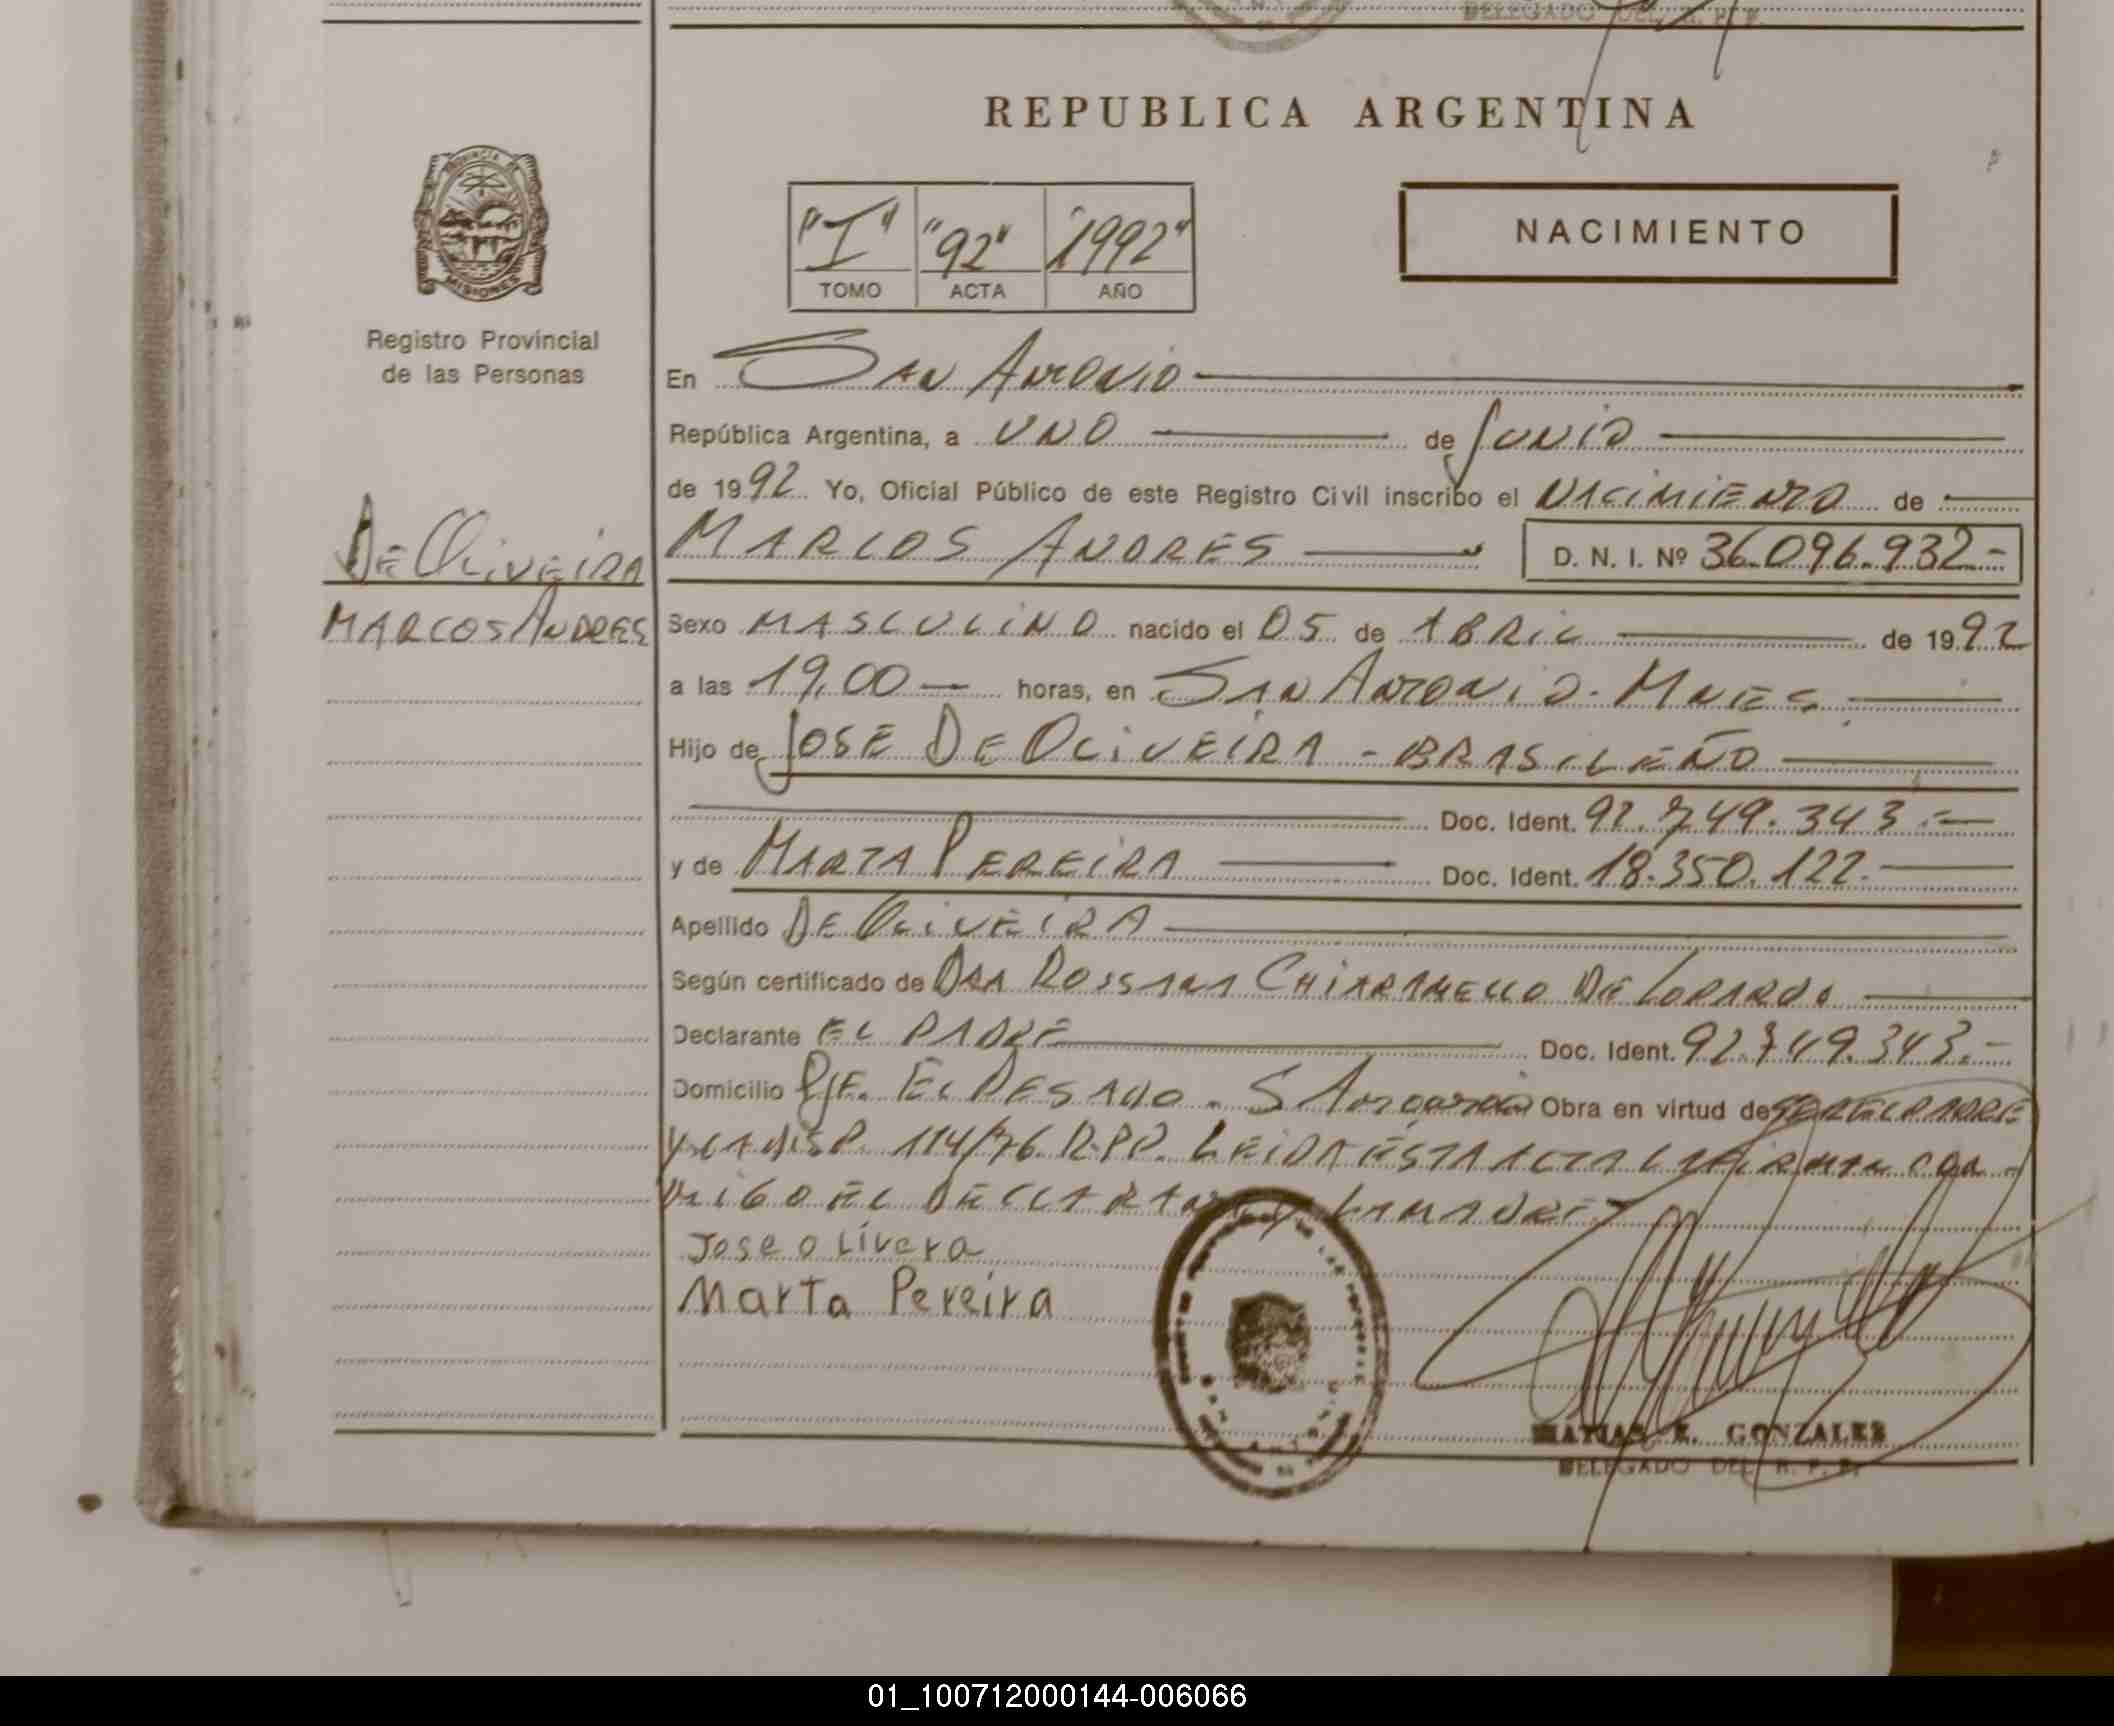 DELEGADO DEL R. P. P.
REPUBLICA ARGENTINA
PROVINCIA DE
MISIONES
Registro Provincial
de las Personas
"I" "92" "1992"
TOMO ACTA AÑO
NACIMIENTO
En SAN ANTONIO
República Argentina, a UNO de JUNIO
de 1992 Yo, Oficial Público de este Registro Civil inscribo el NACIMIENTO de
DE OLIVEIRA
MARCOS ANDRES
MARCOS ANDRES D. N. I. Nº 36.096.932-
Sexo MASCULINO nacido el 05 de ABRIL de 1992
a las 19,00 horas, en SAN ANTONIO. MNES
Hijo de JOSE DE OLIVEIRA - BRASILEÑO
Doc. Ident. 92.749.343.-
y de MARTA PEREIRA Doc. Ident. 18.350.122.
Apellido DE OLIVEIRA
Según certificado de DRA ROSSANA CHIARAMELLO DE
Declarante EL PADRE Doc. Ident. 92.749.343.-
Domicilio PJE. EL PESADO. S ANTONIO Obra en virtud de SER EL PADRE
Y LA DISP. 114/76 R.P.P. LEIDA ESTA ACTA LA FIRMAN CON-
MIGO EL DECLARANTE Y LA MADRE
Jose olivera
Marta Pereira
MATIAS E. GONZALES
DELEGADO DEL R. P. P.
01_100712000144-006066